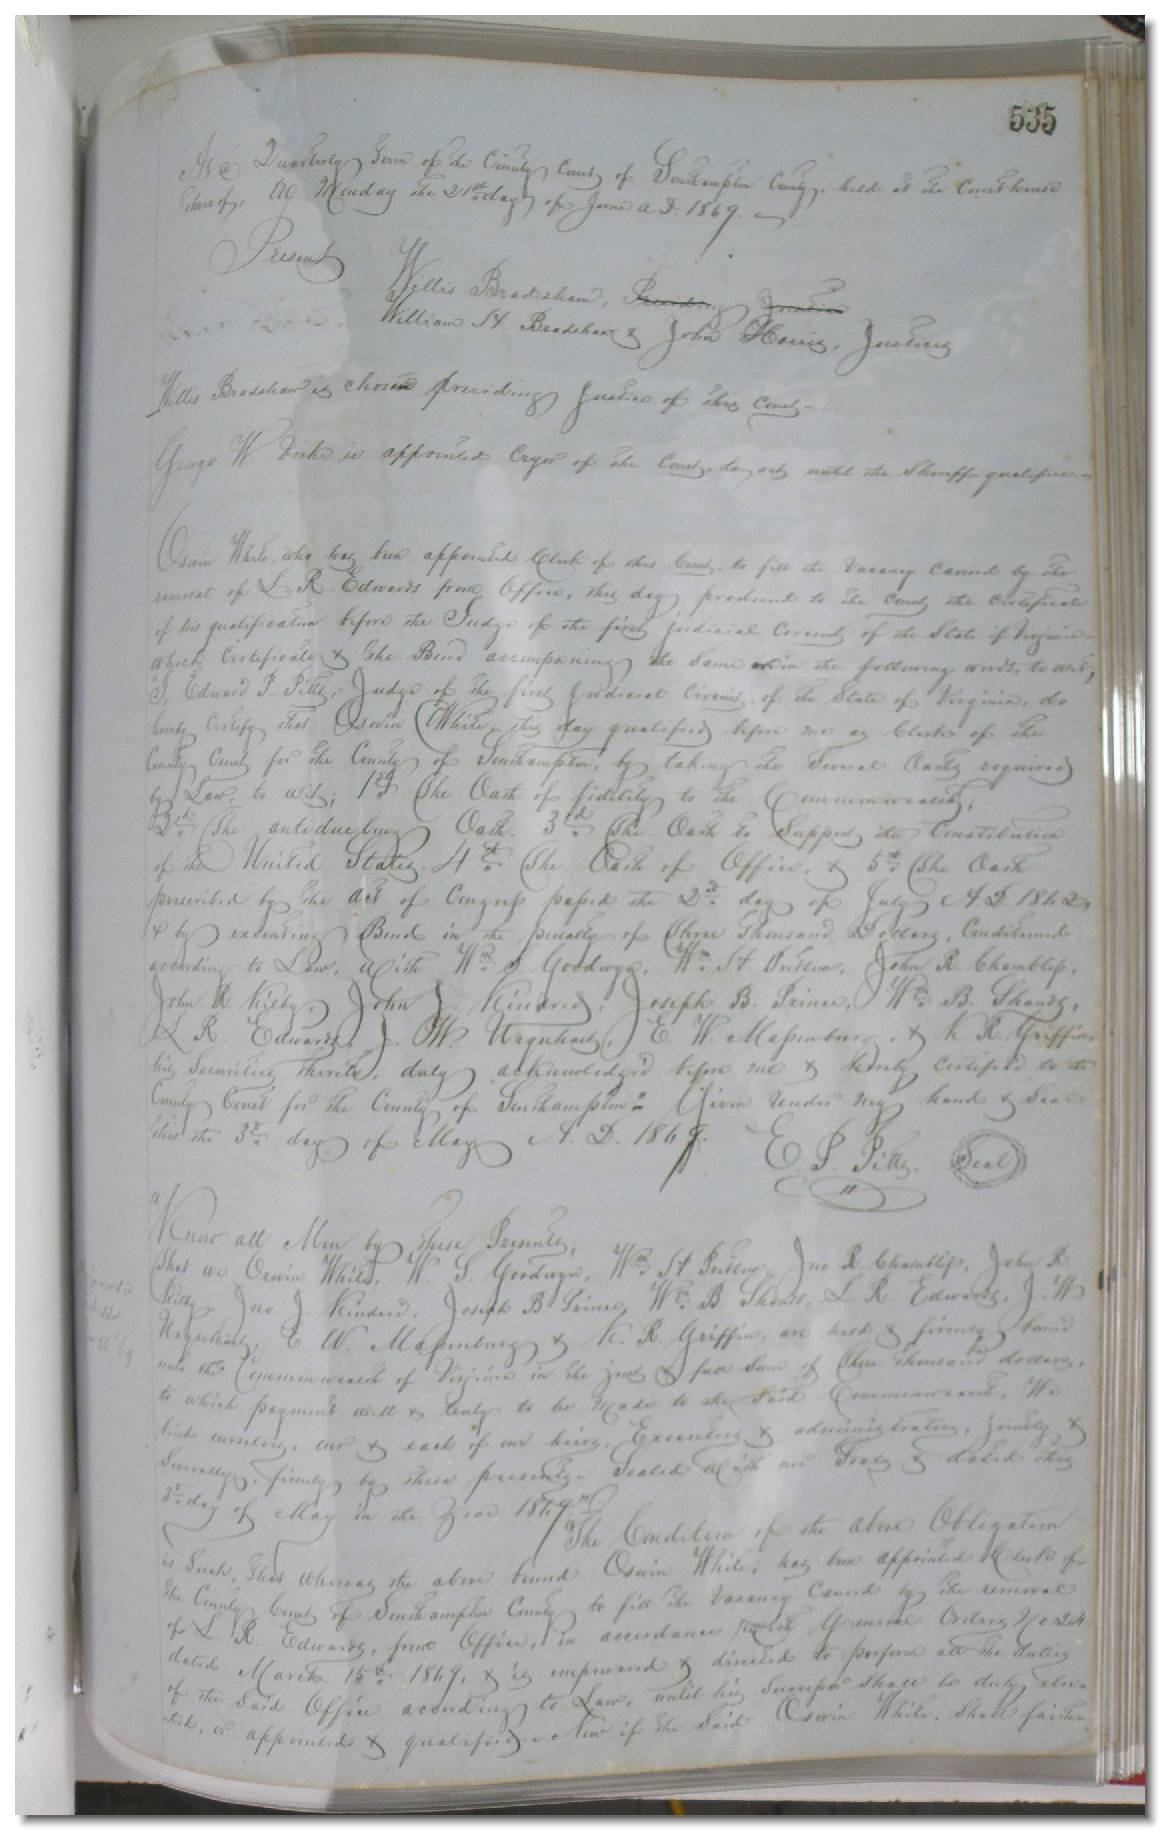 535
At a Quarterly Term of the County Court of Southampton County, held at the Courthouse
thereof, on Monday the 21st day of June A.D. 1869.
Present
Willis Bradshaw, Presiding Justice
William H. Bradshaw & John Harris, Justices
Willis Bradshaw is chosen presiding Justice of this Court
George W. is appointed Cryer of the Court, to act until the Sheriff qualifies
Oswin White, who has been appointed Clerk of this Court, to fill the Vacancy caused by the
removal of L. R. Edwards from Office, this day produced to the Court the certificate
of his qualification before the Judge of the first Judicial Circuit of the State of Virginia
which Certificate & the Bond accompaning the same in the following words, to wit;
"I, Edward P. Pitts, Judge of the first Judicial Circuit, of the State of Virginia, do
hereby Certify that Oswin White, this day qualified before me as Clerk of the
County Court for the County of Southampton, by taking the several Oaths required
by Law, to wit; 1st The Oath of fidelity to the Commonwealth,
2d The antiduelling Oath. 3d The Oath to Support the Constitution
of the United States. 4th The Oath of Office, & 5th The Oath
prescribed by the act of Congress passed the 2d day of July A.D. 1862,
& by executing Bond in the penalty of Three Thousand Dollars, Conditioned
according to Law, with Wm S Goodwyn, Wm H Pretlow, John R. Chambliss,
John R. Kilby, John J Kindred, Joseph B. Prince, Wm B. Shands,
L. R. Edwards, J. W. Urquhart, E. W. Massenburg, & K. R. Griffin
his Securities thereto, duly acknowledged before me & hereby certified to the
County Court for the County of Southampton. Given under my hand & Seal
this the 3d day of May A.D. 1869.
E. P. Pitts. Seal
"Know all Men by these Presents,
That we Oswin White, W. S. Goodwyn, Wm H Pretlow, Jno R. Chambliss, John R
Kilby, Jno. J. Kindred, Joseph B Prince, Wm B Shands, L. R. Edwards, J. W
Urquhart, E. W. Massenburg & K. R. Griffin, are held & firmly bound
unto the Commonwealth of Virginia in the just & full Sum of Three thousand dollars,
to which payment well & truly to be made to the said Commonwealth, We
bind ourselves, our & each of our heirs, Executors & administrators, jointly &
Severally, firmly by these presents. Sealed with our Seals & dated this
3d day of May in the Year 1869
The Condition of the above Obligation
is Such, that whereas the above bound Oswin White, has been appointed Clerk of
the County Court of Southampton County to fill the Vacancy caused by the removal
of L. R. Edwards, from Office, in accordance with General Orders No 24
dated March 15th 1869, & is empowered & directed to perform all the duties
of the said Office according to Law, until his Successor shall be duly elec
ted, or appointed & qualified. Now if the Said Oswin White, shall faith